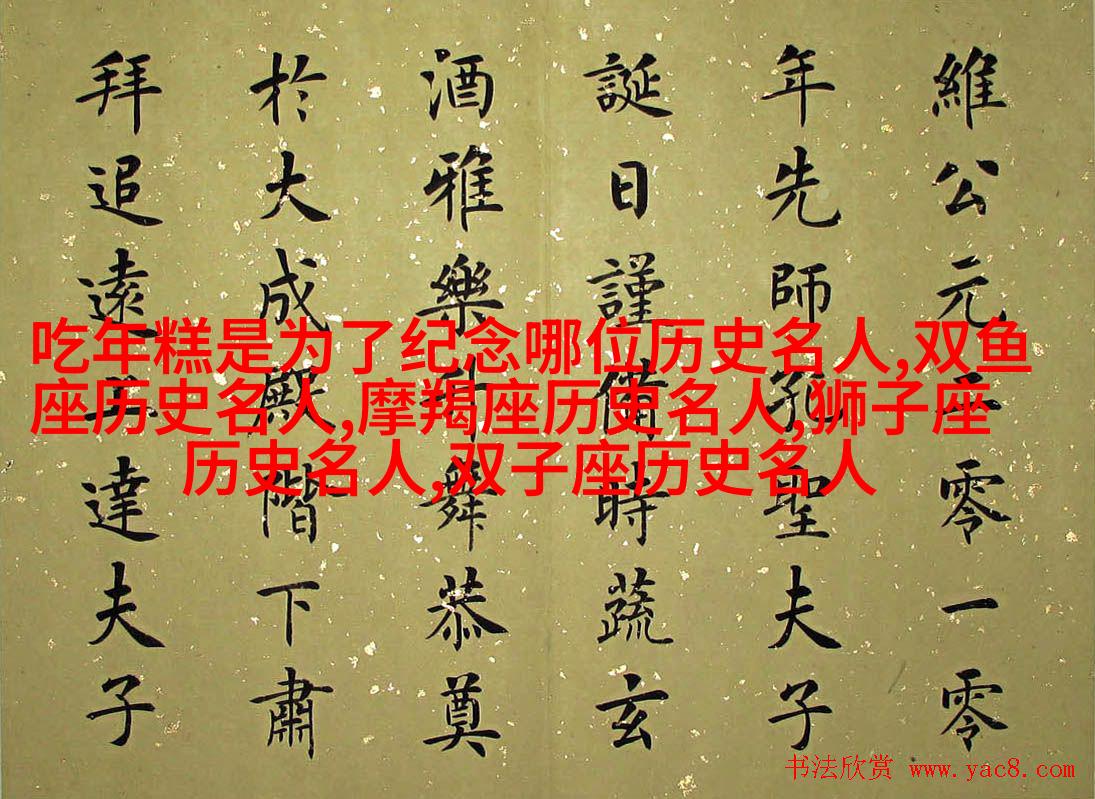 維公元二零一零
年先師孔聖夫子
誕日謹備時蔬玄
酒雅樂舞恭奠
於大成殿階下肅
拜追遠達夫子
吃年糕是为了纪念哪位历史名人,双鱼
座历史名人,摩羯座历史名人,狮子座
历史名人,双子座历史名人
书法欣赏 www.yac8.com